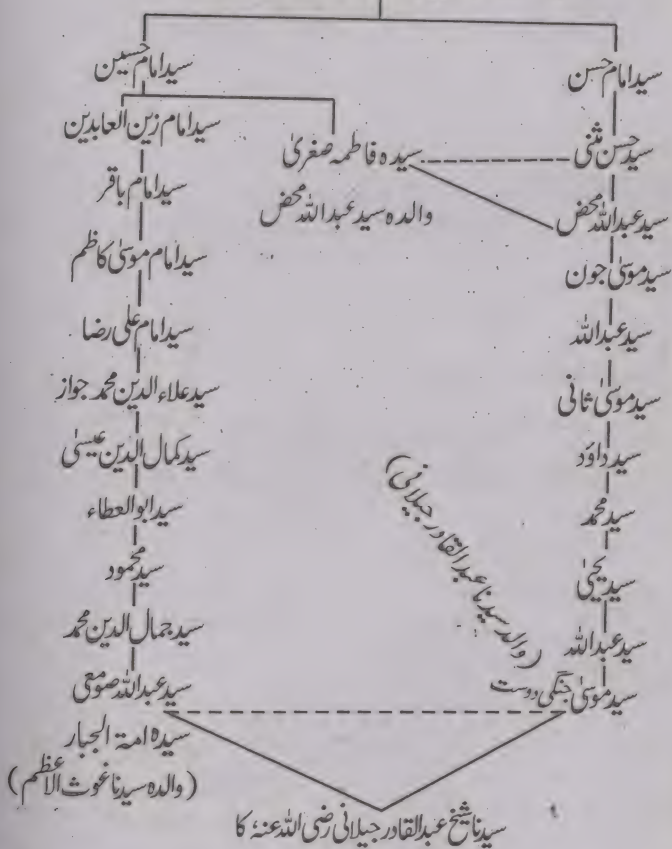 سید امام حسن
سید حسن مثنیٰ
سید عبداللہ محض
سید موسیٰ جون
سید عبداللہ
سید موسیٰ ثانی
سید داؤد
سید محمد
سید یحییٰ
سید عبداللہ
سید موسیٰ جنگی دوست
(والد سیدنا عبدالقادر جیلانی)
سیدہ فاطمہ صغریٰ
والدہ سید عبداللہ محض
سید امام حسین
سید امام زین العابدین
سید امام باقر
سید امام موسیٰ کاظم
سید امام علی رضا
سید علاء الدین محمد جواز
سید کمال الدین عیسیٰ
سید ابوالعطاء
سید محمود
سید جمال الدین محمد
سید عبداللہ صومعی
سیدہ امۃ الجبار
(والدہ سیدنا غوث الاعظم)
سیدنا شیخ عبدالقادر جیلانی رضی اللہ عنہٗ کا